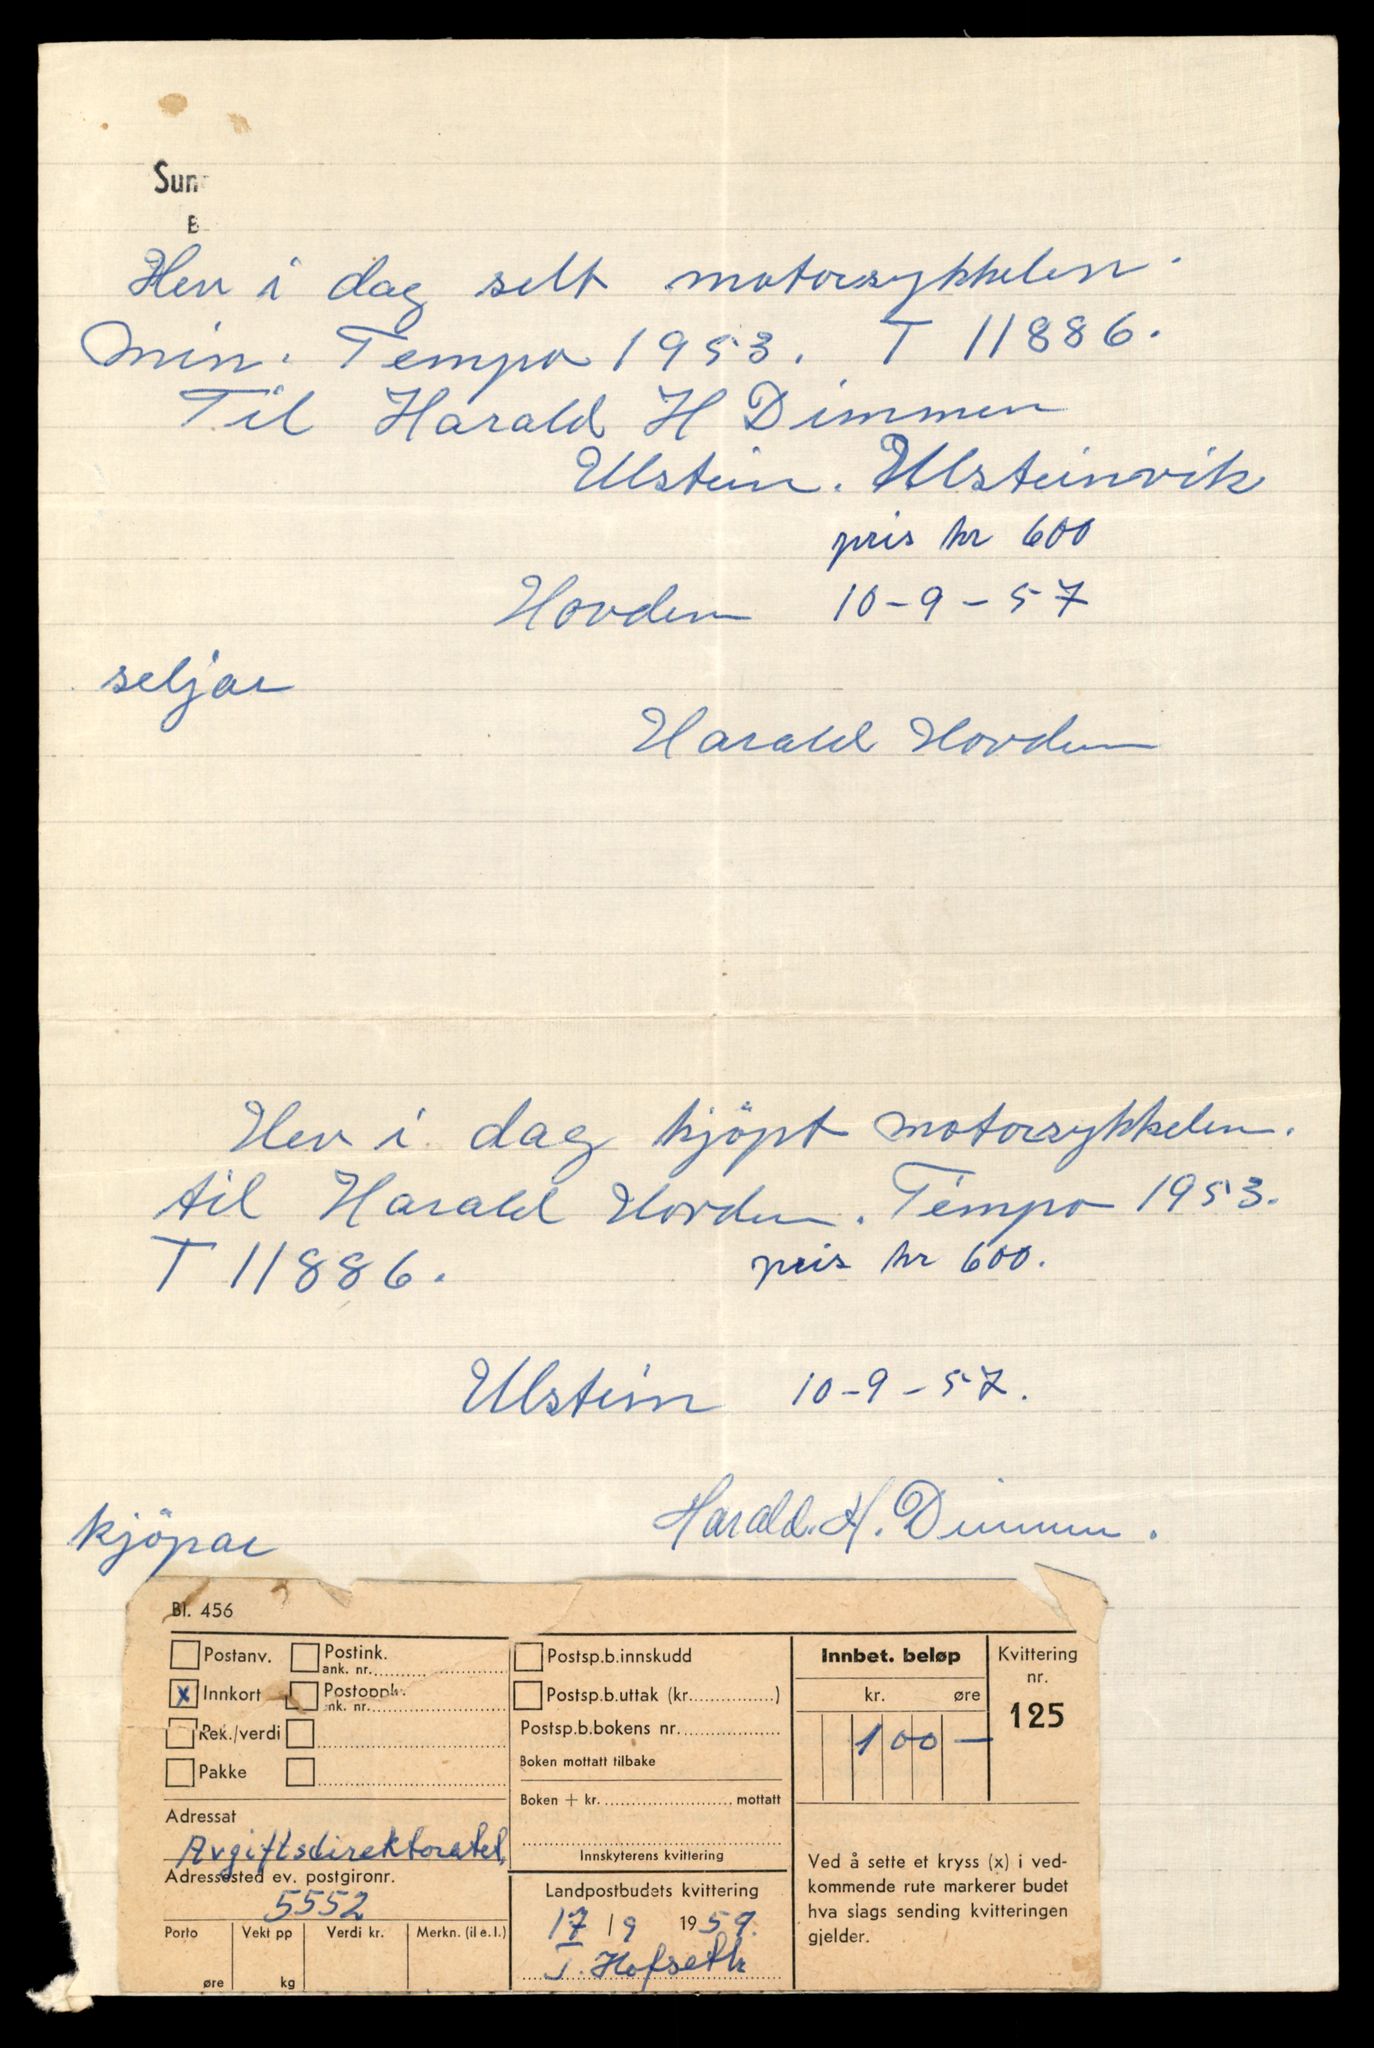 Sun
B
Hev i dag selt motorsykkelen.
min. Tempo 1953. T 11886.
Til Harald H Dimmen
Ulstein. Ulsteinvik
pris kr 600
Hovden 10-9-57
seljar
Harald Hovden
Hev i dag kjöpt motorsykkelen.
til Harald Hovden. Tempo 1953.
T 11886. pris kr 600.
Ulstein 10-9-57.
Harald. H. Dimmen.
kjöpar
Bl. 456
Postanv. Postink. ank. nr.
x Innkort Postoppkr. ank. nr.
Rek./verdi
Pakke
Adressat
Avgiftsdirektoratet,
Adressested ev. postgironr.
5552
Porto Vekt pp Verdi kr. Merkn. (il e.l.)
øre kg
Postsp.b.innskudd
Postsp.b.uttak (kr...............)
Postsp.b.bokens nr.
Boken mottatt tilbake
Boken + kr. mottatt
Innskyterens kvittering
Landpostbudets kvittering
17/9 1959.
T. Hofseth
Innbet. beløp
kr. øre
100 —
Kvittering
nr.
125
Ved å sette et kryss (x) i ved-
kommende rute markerer budet
hva slags sending kvitteringen
gjelder.